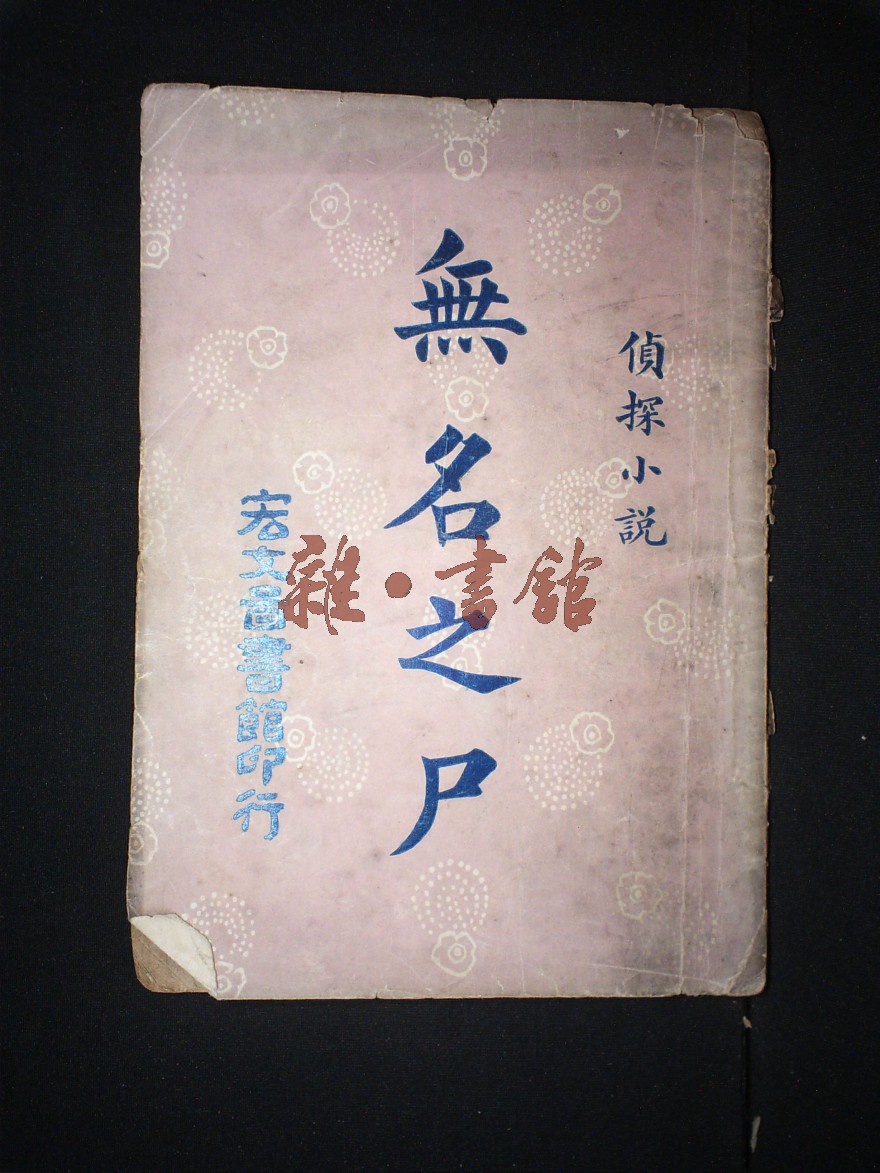 偵探小說
無名之尸
宏文圖書館印行
雜·書館